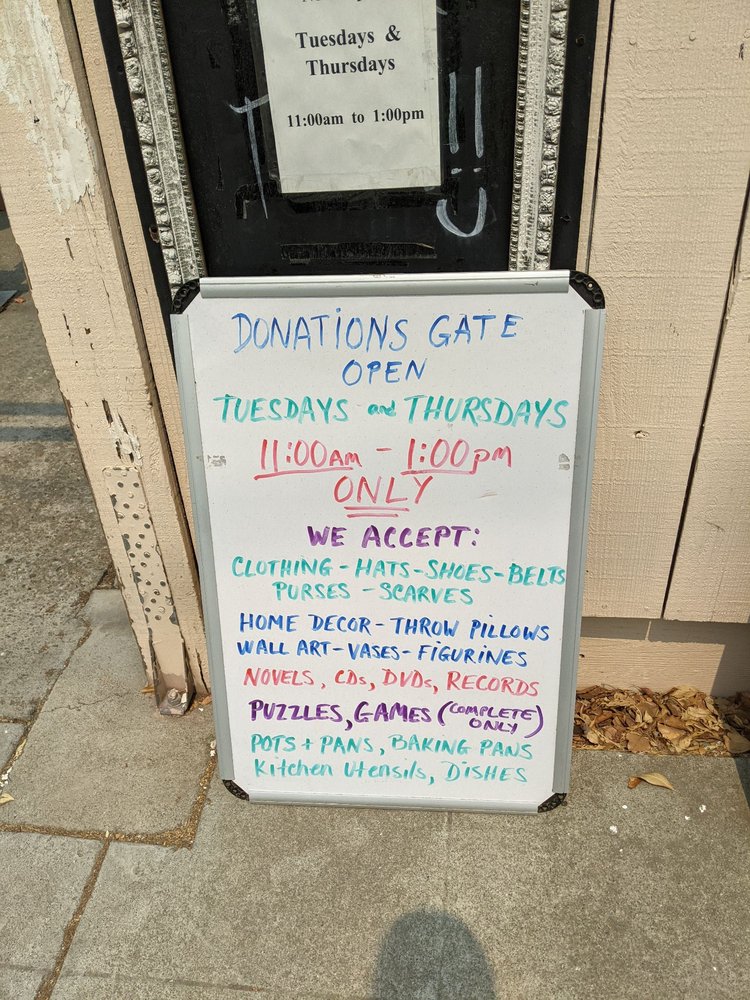 Tuesdays &
Thursdays
11:00am to 1:00pm
DONATIONS GATE
OPEN
TUESDAYS and THURSDAYS
11:00AM - 1:00pm
ONLY
WE ACCEPT:
CLOTHING - HATS - SHOES - BELTS
PURSES - SCARVES
HOME DECOR - THROW PILLOWS
WALL ART - VASES - FIGURINES
NOVELS, CDs, DVDs, RECORDS
PUZZLES, GAMES (COMPLETE ONLY)
POTS + PANS, BAKING PANS
Kitchen Utensils, DISHES